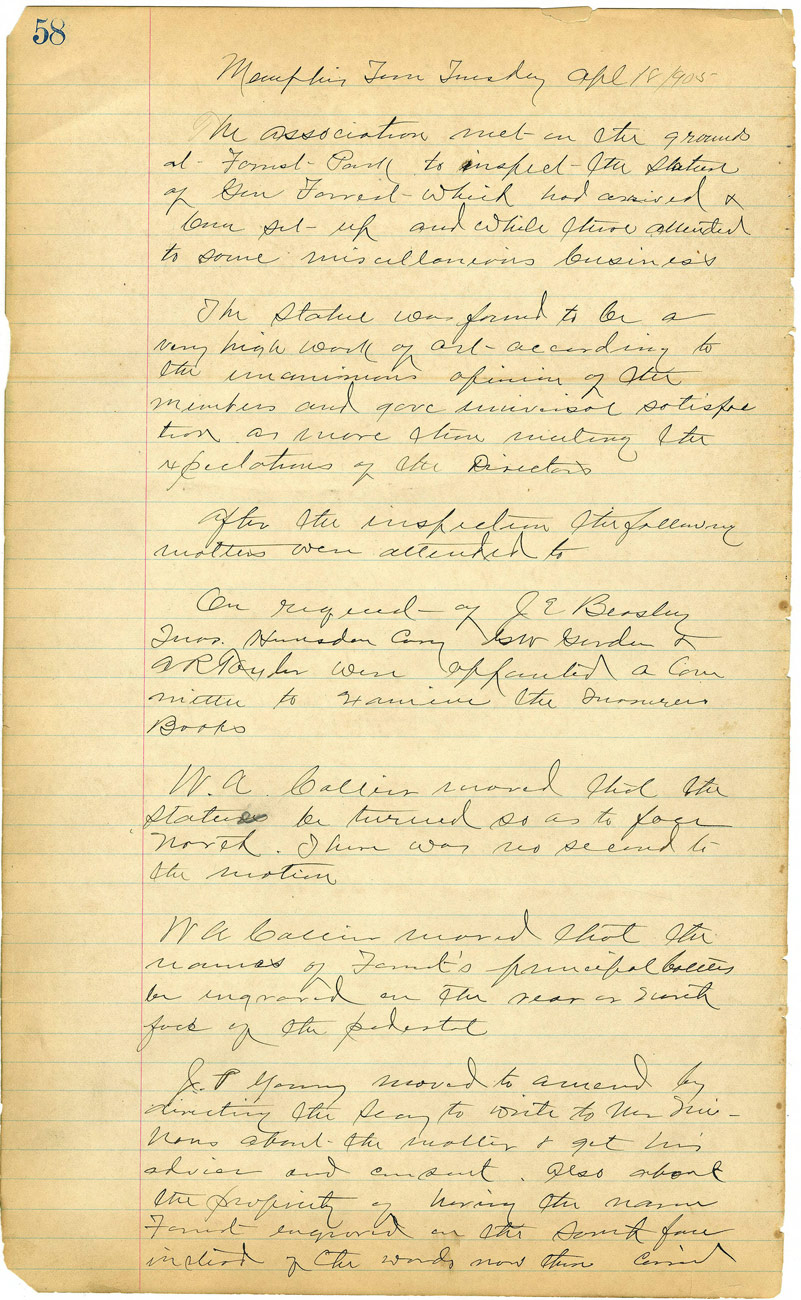 58
Memphis Tenn Tuesday Apl 18 1905
The association met on the grounds
at Forrest Park to inspect the Statue
of Gen Forrest which had arrived &
been set up and while there attended
to some miscellaneous business
The statue was found to be a
very high work of art according to
the unanimous opinion of the
members and gave universal satisfac
tion as more than meeting the
expectations of the Directors
After the inspection the following
matters were attended to
On request of J E Beasley
Thos. Cary GW Gordon &
A R Taylor were appointed a Com
mittee to Examine the Treasurers
Books
W. A. Collier moved that the
statue be turned so as to face
North. There was no second to
the motion
W A Collier moved that the
names of Forrest's principal battles
be engraved on the rear or North
face of the pedestal
J. P Young moved to amend by
directing the Secy to write to Mr Nie-
haus about the matter & get his
advice and consent. Also about
the propriety of having the name
Forrest engraved on the South face
instead of the words now there